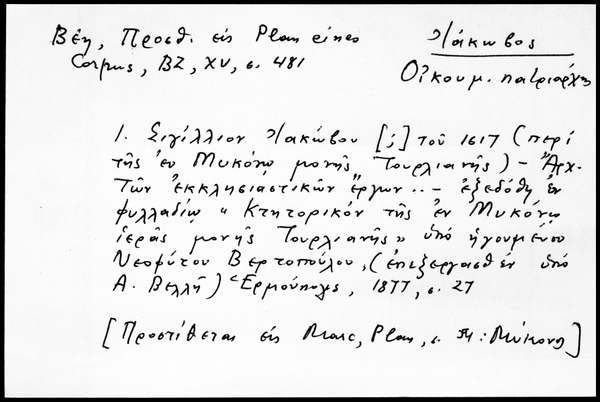 Βέη, Προσθ. εἰς Plan eines
Corpus, BZ, XV, σ. 481
Ἰάκωβος
Οἰκουμ. πατριάρχης
1. Σιγίλλιον Ἰακώβου [;] τοῦ 1617 (περὶ
τῆς ἐν Μυκόνῳ μονῆς Τουρλιανῆς) – Ἀρχ.
τῶν ἐκκλησιαστικῶν ἔργων .. – ἐξεδόθη ἐν
φυλλαδίῳ «Κτητορικόν τῆς ἐν Μυκόνῳ
ἱερᾶς μονῆς Τουρλιανῆς» ὑπό ἡγουμένου
Νεοφύτου Βερτοπούλου, (ἐπεξεργασθέν ὑπό
Α. Βελλῆ) Ἑρμούπολις, 1877, σ. 27
[Προστίθεται εἰς Marc, Plan, σ. : Μύκονος]